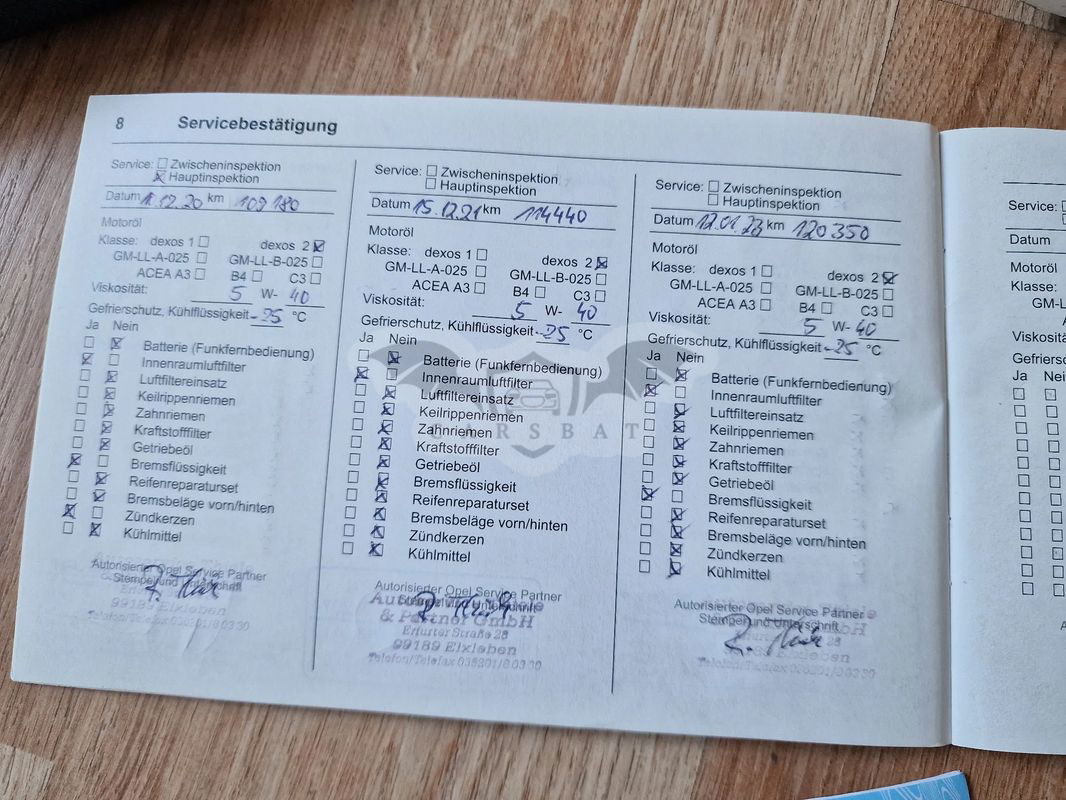 8 Servicebestätigung
Service: Zwischeninspektion
Hauptinspektion
Datum 11.12.20 km 109180
Motoröl
Klasse: dexos 1 dexos 2
GM-LL-A-025 GM-LL-B-025
ACEA A3 B4 C3
Viskosität: 5 W- 40
Gefrierschutz, Kühlflüssigkeit -25 °C
Ja Nein
Batterie (Funkfernbedienung)
Innenraumluftfilter
Luftfiltereinsatz
Keilrippenriemen
Zahnriemen
Kraftstofffilter
Getriebeöl
Bremsflüssigkeit
Reifenreparaturset
Bremsbeläge vorn/hinten
Zündkerzen
Kühlmittel
Autorisierter Opel Service Partner
Stempel und Unterschrift
99189 Elxleben
Telefon/Telefax 036201/8 03 30
Service: Zwischeninspektion
Hauptinspektion
Datum 15.12.21 km 114440
Motoröl
Klasse: dexos 1 dexos 2
GM-LL-A-025 GM-LL-B-025
ACEA A3 B4 C3
Viskosität: 5 W- 40
Gefrierschutz, Kühlflüssigkeit -25 °C
Ja Nein
Batterie (Funkfernbedienung)
Innenraumluftfilter
Luftfiltereinsatz
Keilrippenriemen
Zahnriemen
Kraftstofffilter
Getriebeöl
Bremsflüssigkeit
Reifenreparaturset
Bremsbeläge vorn/hinten
Zündkerzen
Kühlmittel
Autorisierter Opel Service Partner
Stempel und Unterschrift
& Partner GmbH
Erfurter Straße 28
99189 Elxleben
Telefon/Telefax 036201/8 03 30
Service: Zwischeninspektion
Hauptinspektion
Datum 12.01.23 km 120350
Motoröl
Klasse: dexos 1 dexos 2
GM-LL-A-025 GM-LL-B-025
ACEA A3 B4 C3
Viskosität: 5 W- 40
Gefrierschutz, Kühlflüssigkeit -25 °C
Ja Nein
Batterie (Funkfernbedienung)
Innenraumluftfilter
Luftfiltereinsatz
Keilrippenriemen
Zahnriemen
Kraftstofffilter
Getriebeöl
Bremsflüssigkeit
Reifenreparaturset
Bremsbeläge vorn/hinten
Zündkerzen
Kühlmittel
Autorisierter Opel Service Partner
Stempel und Unterschrift
99189 Elxleben
Telefon/Telefax 036201/8 03 30
CARSBAT
Service:
Datum
Motoröl
Klasse:
GM-L
Viskosi
Gefriersc
Ja Nei